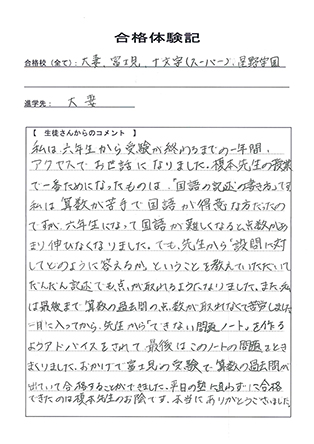 合格体験記
合格校（全て）：大妻、富士見、十文字（スーパー）、星野学園
進学先： 大妻
【 生徒さんからのコメント 】
私は六年生から受験が終わるまでの一年間、
アクセスでお世話になりました。榎本先生の授業
で一番ためになったものは、「国語の記述の書き方」です。
私は算数が苦手で国語が得意な方だったの
ですが、六年生になって国語が難しくなると点数があ
まり伸びなくなりました。でも、先生から「設問に対
してどのように答えるか」ということを教えていただいて
だんだん記述でも点が取れるようになりました。また私
は最後まで算数の過去問の点数が取れなくて苦労しました。
一月に入ってから、先生から「できない問題ノート」を作る
ようアドバイスをされて最後はこのノートの問題をとき
まくりました。おかげで富士見の受験で算数の過去問が
出ていて合格することができました。平日の塾に通わずに合格
できたのは榎本先生のお陰です。本当にありがとうございました。